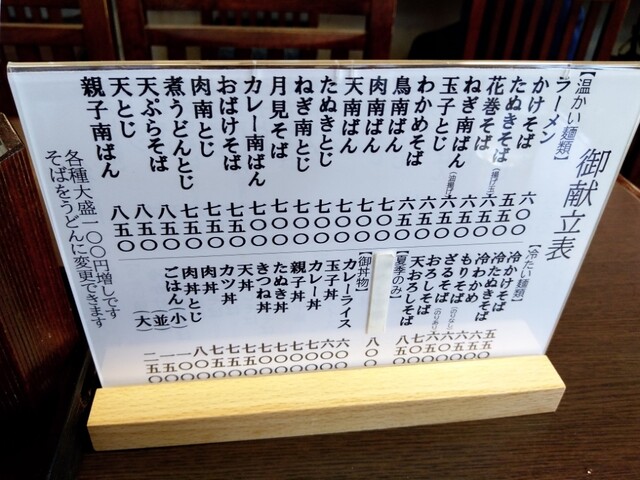 御献立表
【温かい麺類】
ラーメン 六〇〇
かけそば 五五〇
たぬきそば(揚げ玉) 五五〇
花巻そば 六五〇
ねぎ南ばん(油揚げ) 六五〇
玉子とじ 六五〇
わかめそば 六五〇
鳥南ばん 六五〇
肉南ばん 七〇〇
天南ばん 七〇〇
たぬきとじ 七〇〇
ねぎ南とじ 七〇〇
月見そば 七〇〇
カレー南ばん 七〇〇
おばけそば 七五〇
肉南とじ 七五〇
煮うどんとじ 八五〇
天ぷらそば 八五〇
天とじ 八五〇
親子南ばん 八五〇
【冷たい麺類】
冷かけそば
冷たぬきそば
冷わかめ
もりそば(のりなし)
ざるそば(のりあり)
おろしそば
天おろしそば
【夏季のみ】
【御丼物】
カレーライス
玉子丼
カレー丼
親子丼
たぬき丼
きつね丼
天丼
カツ丼
肉丼
肉丼とじ
ごはん(小
並
大)
各種大盛一〇〇円増しです
そばをうどんに変更できます